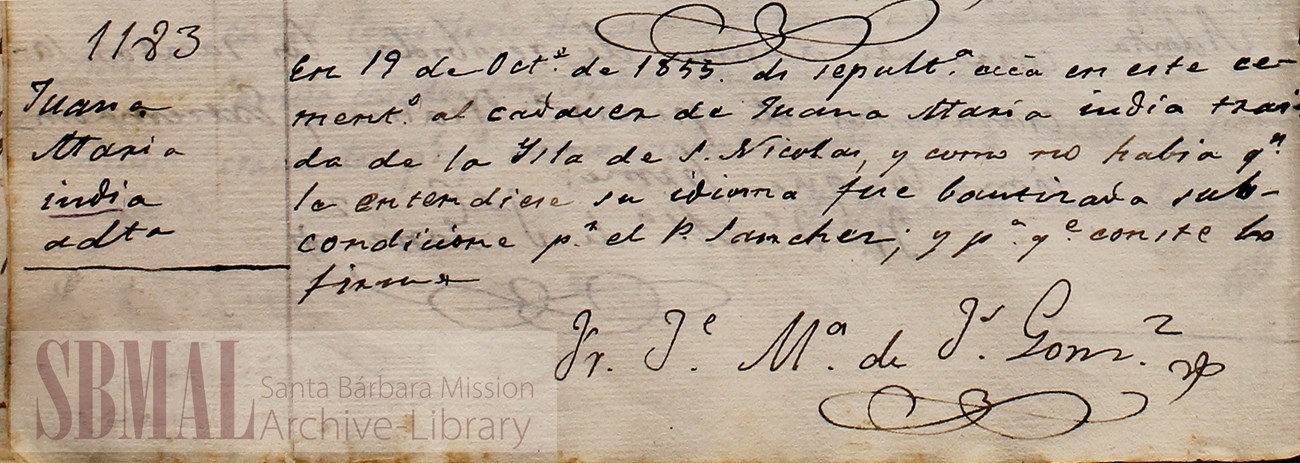 1183
Juana
Maria
india
adta
En 19 de Octe. de 1853. di sepulta. ecca en este ce-
mento. al cadaver de Juana Maria india trai-
da de la Ysla de S. Nicolas, y como no habia qn.
le entendiese su idioma fue bautizada sub-
condicione pr. el P. Sanchez; y pa. qe. conste lo
firme
Fr. Je. Ma. de Js. Gonz.
SBMAL
Santa Bárbara Mission
Archive-Library